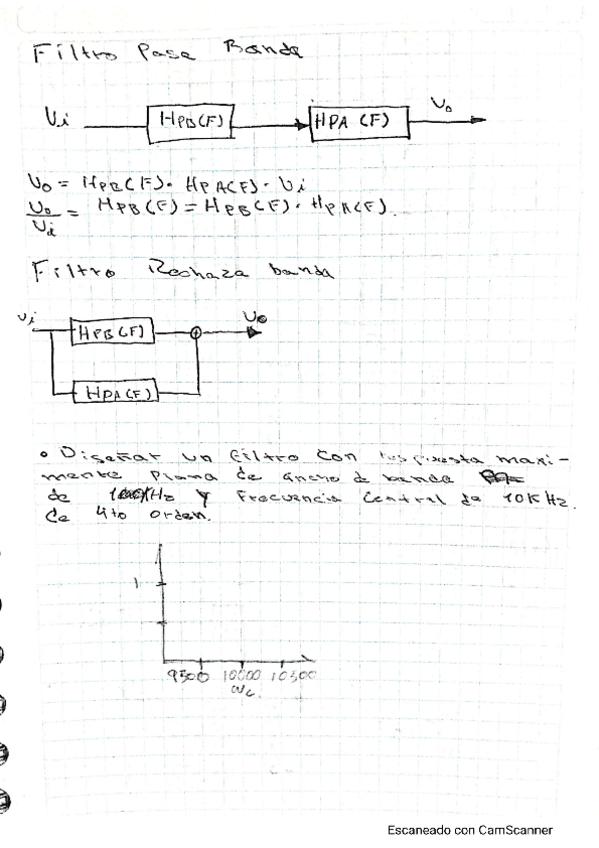 Filtro Pasa Banda
Vi HPB(F) HPA (F) Vo
Vo = HPB(F). HPA(F). Vi
Vo/Vi = HPB(F) = HPB(F). HPA(F).
Filtro Rechaza banda
Vi HPB(F) Vo
HPA(F)
• Diseñar un filtro con respuesta maxi-
mente plana de ancho d banda
de KHz y Frecuencia central de 10KHz.
de 4to orden.
1
9500 10000 10500
Wc.
Escaneado con CamScanner